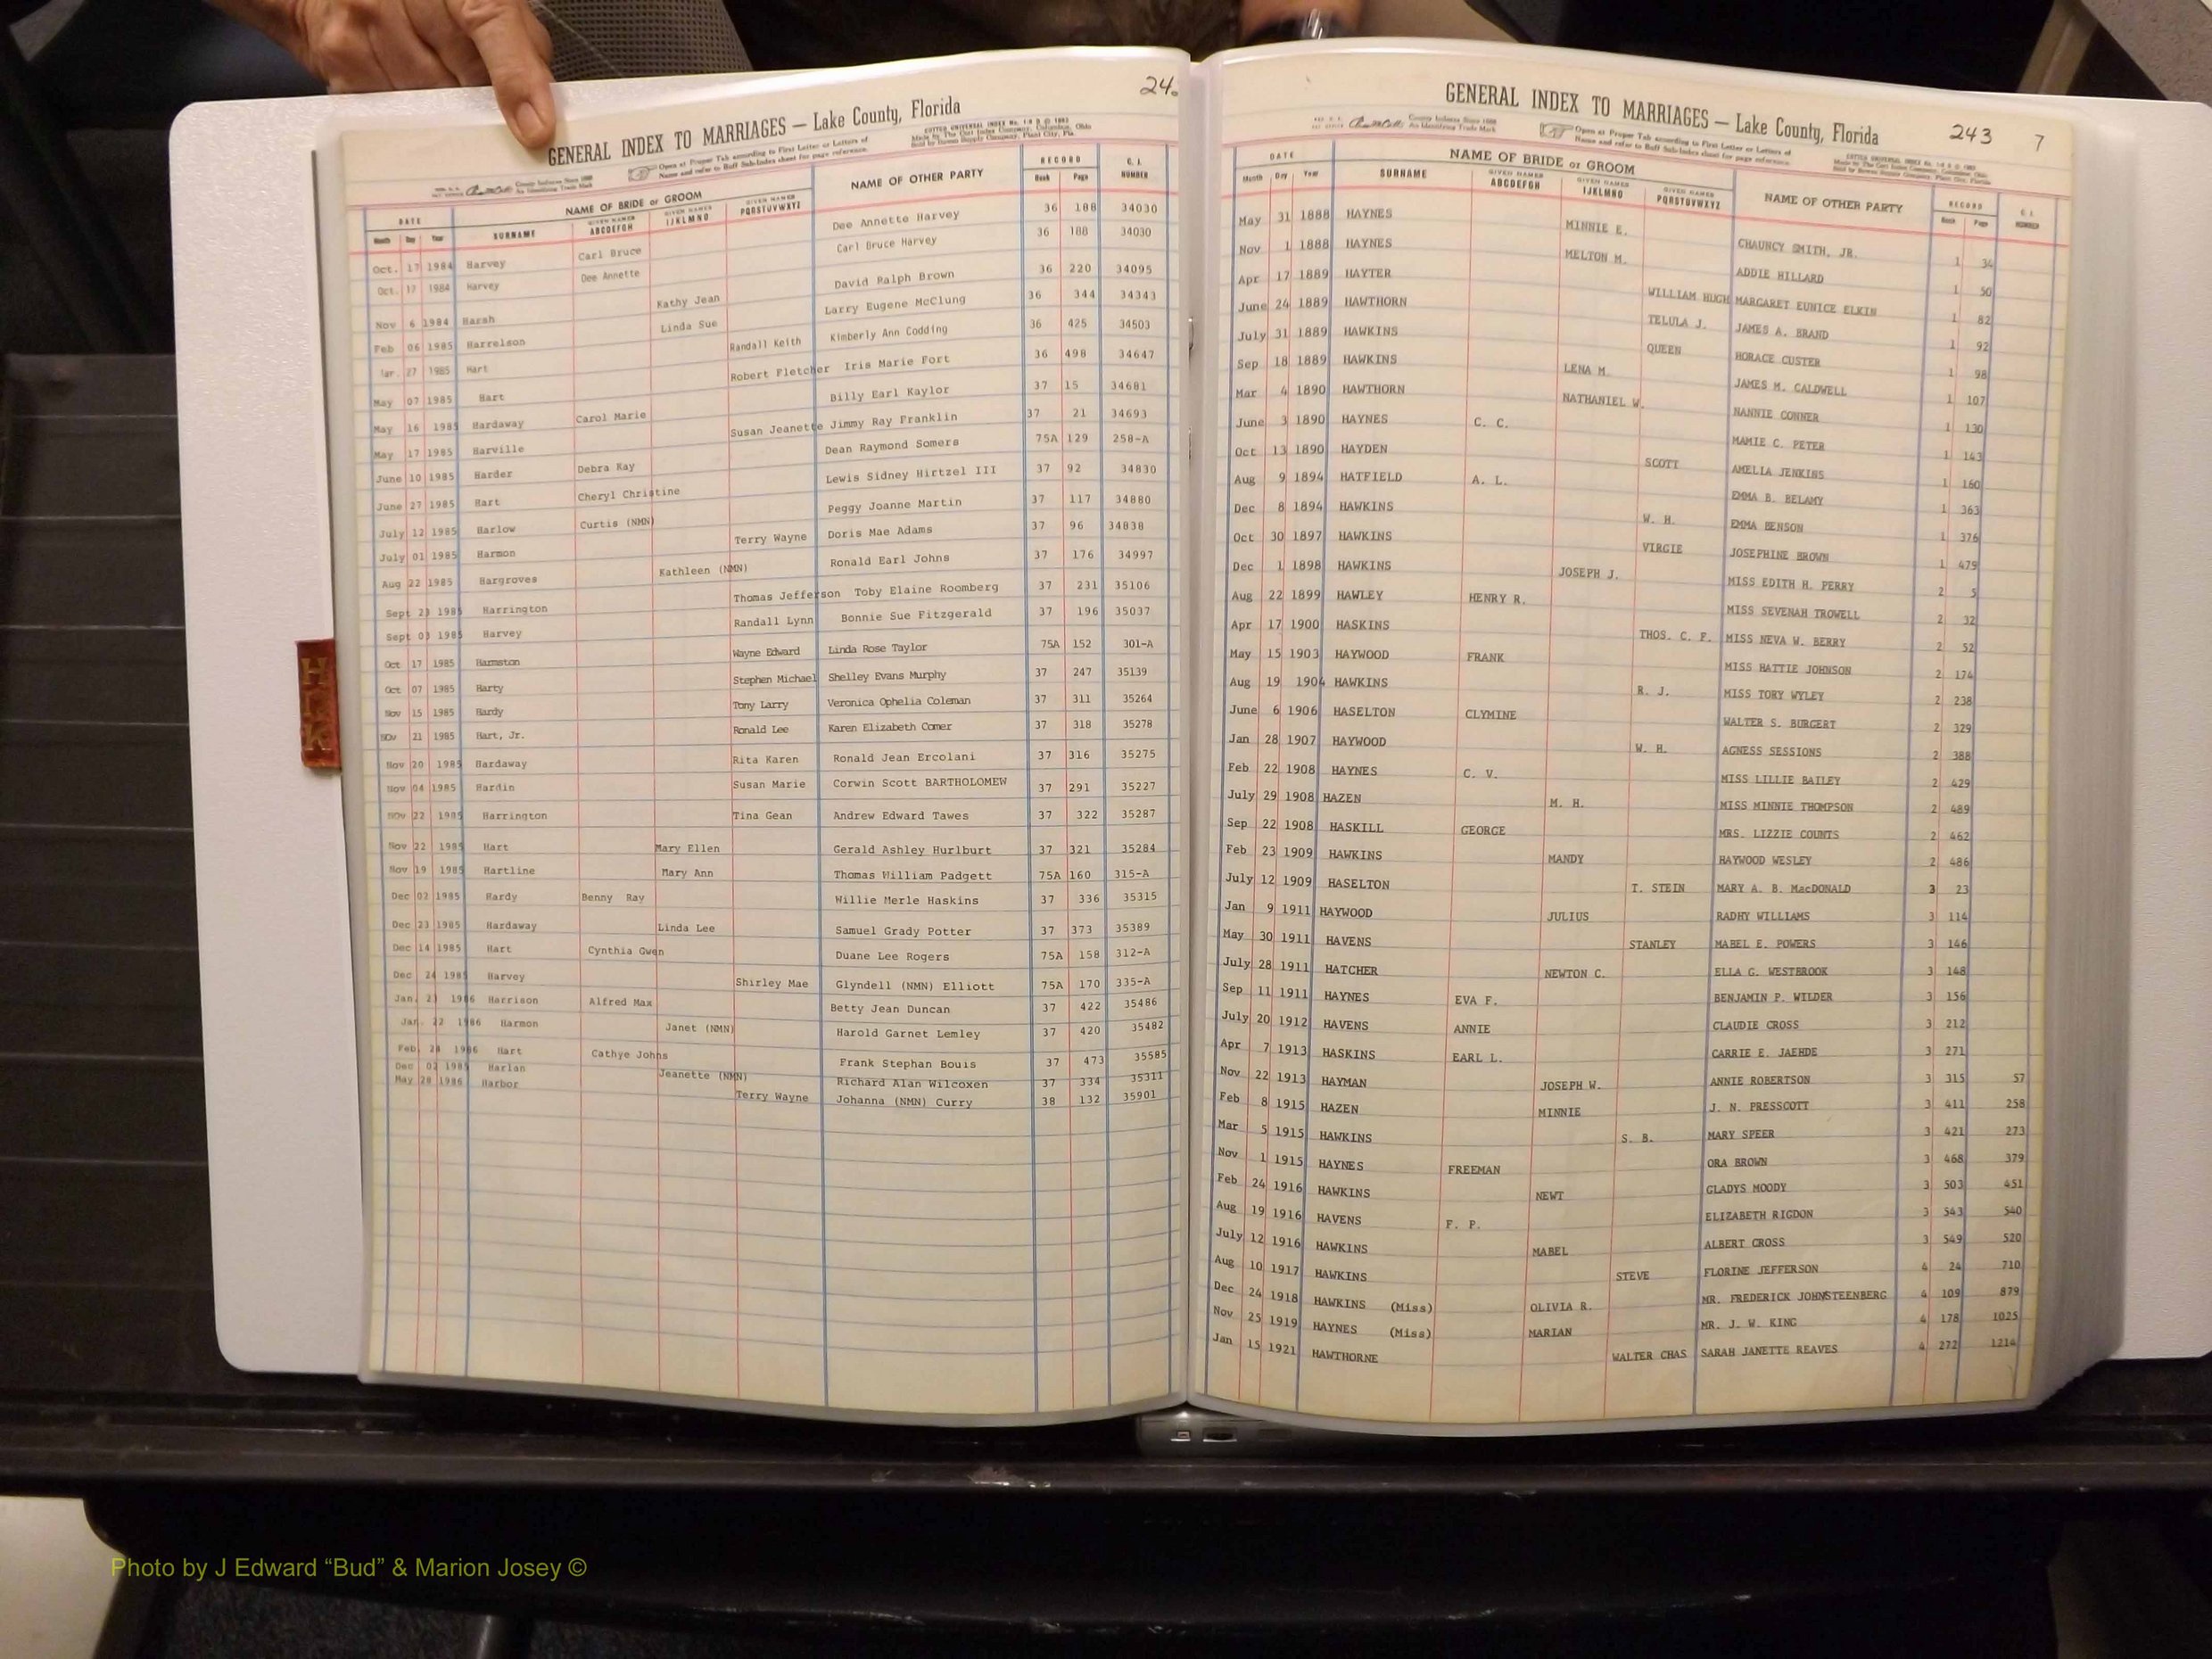 24
GENERAL INDEX TO MARRIAGES — Lake County, Florida
Open at Proper Tab according to First Letter or Letters of
Name and refer to Buff Sub-Index sheet for page reference.
DATE NAME OF BRIDE or GROOM NAME OF OTHER PARTY RECORD C. I. NUMBER
Month Day Year SURNAME GIVEN NAMES ABCDEFGH GIVEN NAMES IJKLMNO GIVEN NAMES PQRSTUVWXYZ Book Page
Oct. 17 1984 Harvey Carl Bruce Dee Annette Harvey 36 188 34030
Oct. 17 1984 Harvey Dee Annette Carl Bruce Harvey 36 188 34030
Nov 6 1984 Harsh Kathy Jean David Ralph Brown 36 220 34095
Feb 06 1985 Harrelson Linda Sue Larry Eugene McClung 36 344 34343
27 1985 Hart Randall Keith Kimberly Ann Codding 36 425 34503
May 07 1985 Hart Robert Fletcher Iris Marie Fort 36 498 34647
May 16 1985 Hardaway Carol Marie Billy Earl Kaylor 37 15 34681
May 17 1985 Harville Susan Jeanette Jimmy Ray Franklin 37 21 34693
June 10 1985 Harder Debra Kay Dean Raymond Somers 75A 129 258-A
June 27 1985 Hart Cheryl Christine Lewis Sidney Hirtzel III 37 92 34830
July 12 1985 Harlow Curtis (NMN) Peggy Joanne Martin 37 117 34880
July 01 1985 Harmon Terry Wayne Doris Mae Adams 37 96 34838
Aug 22 1985 Hargroves Kathleen (NMN) Ronald Earl Johns 37 176 34997
Sept 23 1985 Harrington Thomas Jefferson Toby Elaine Roomberg 37 231 35106
Sept 03 1985 Harvey Randall Lynn Bonnie Sue Fitzgerald 37 196 35037
Oct 17 1985 Harmston Wayne Edward Linda Rose Taylor 75A 152 301-A
Oct 07 1985 Harty Stephen Michael Shelley Evans Murphy 37 247 35139
Nov 15 1985 Hardy Tony Larry Veronica Ophelia Coleman 37 311 35264
Nov 21 1985 Hart, Jr. Ronald Lee Karen Elizabeth Comer 37 318 35278
Nov 20 1985 Hardaway Rita Karen Ronald Jean Ercolani 37 316 35275
Nov 04 1985 Hardin Susan Marie Corwin Scott BARTHOLOMEW 37 291 35227
Nov 22 1985 Harrington Tina Gean Andrew Edward Tawes 37 322 35287
Nov 22 1985 Hart Mary Ellen Gerald Ashley Hurlburt 37 321 35284
Nov 19 1985 Hartline Mary Ann Thomas William Padgett 75A 160 315-A
Dec 02 1985 Hardy Benny Ray Willie Merle Haskins 37 336 35315
Dec 23 1985 Hardaway Linda Lee Samuel Grady Potter 37 373 35389
Dec 14 1985 Hart Cynthia Gwen Duane Lee Rogers 75A 158 312-A
Dec 24 1985 Harvey Shirley Mae Glyndell (NMN) Elliott 75A 170 335-A
Jan. 2 1986 Harrison Alfred Max Betty Jean Duncan 37 422 35486
Jan. 22 1986 Harmon Janet (NMN) Harold Garnet Lemley 37 420 35482
Feb. 24 1986 Hart Cathye Johns Frank Stephan Bouis 37 473 35585
Dec 02 1985 Harlan Jeanette (NMN) Richard Alan Wilcoxen 37 334 35311
May 28 1986 Harbor Terry Wayne Johanna (NMN) Curry 38 132 35901
H I K
243 7
GENERAL INDEX TO MARRIAGES — Lake County, Florida
Open at Proper Tab according to First Letter or Letters of
Name and refer to Buff Sub-Index sheet for page reference.
DATE NAME OF BRIDE or GROOM NAME OF OTHER PARTY RECORD C. I. NUMBER
Month Day Year SURNAME GIVEN NAMES ABCDEFGH GIVEN NAMES IJKLMNO GIVEN NAMES PQRSTUVWXYZ Book Page
May 31 1888 HAYNES MINNIE E. CHAUNCY SMITH, JR. 1 34
Nov 1 1888 HAYNES MELTON M. ADDIE HILLARD 1 50
Apr 17 1889 HAYTER WILLIAM HUGH MARGARET EUNICE ELKIN 1 82
June 24 1889 HAWTHORN TELULA J. JAMES A. BRAND 1 92
July 31 1889 HAWKINS QUEEN HORACE CUSTER 1 98
Sep 18 1889 HAWKINS LENA M. JAMES M. CALDWELL 1 107
Mar 4 1890 HAWTHORN NATHANIEL W. NANNIE CONNER 1 130
June 3 1890 HAYNES C. C. MAMIE C. PETER 1 143
Oct 13 1890 HAYDEN SCOTT AMELIA JENKINS 1 160
Aug 9 1894 HATFIELD A. L. EMMA B. BELAMY 1 363
Dec 8 1894 HAWKINS W. H. EMMA BENSON 1 376
Oct 30 1897 HAWKINS VIRGIE JOSEPHINE BROWN 1 479
Dec 1 1898 HAWKINS JOSEPH J. MISS EDITH H. PERRY 2 5
Aug 22 1899 HAWLEY HENRY R. MISS SEVENAH TROWELL 2 32
Apr 17 1900 HASKINS THOS. C. F. MISS NEVA W. BERRY 2 52
May 15 1903 HAYWOOD FRANK MISS HATTIE JOHNSON 2 174
Aug 19 1904 HAWKINS R. J. MISS TORY WYLEY 2 238
June 6 1906 HASELTON CLYMINE WALTER S. BURGERT 2 329
Jan 28 1907 HAYWOOD W. H. AGNESS SESSIONS 2 388
Feb 22 1908 HAYNES C. V. MISS LILLIE BAILEY 2 429
July 29 1908 HAZEN M. H. MISS MINNIE THOMPSON 2 489
Sep 22 1908 HASKILL GEORGE MRS. LIZZIE COUNTS 2 462
Feb 23 1909 HAWKINS MANDY HAYWOOD WESLEY 2 486
July 12 1909 HASELTON T. STEIN MARY A. B. MacDONALD 3 23
Jan 9 1911 HAYWOOD JULIUS RADHY WILLIAMS 3 114
May 30 1911 HAVENS STANLEY MABEL E. POWERS 3 146
July 28 1911 HATCHER NEWTON C. ELLA G. WESTBROOK 3 148
Sep 11 1911 HAYNES EVA F. BENJAMIN P. WILDER 3 156
July 20 1912 HAVENS ANNIE CLAUDIE CROSS 3 212
Apr 7 1913 HASKINS EARL L. CARRIE E. JAEHDE 3 271
Nov 22 1913 HAYMAN JOSEPH W. ANNIE ROBERTSON 3 315 57
Feb 8 1915 HAZEN MINNIE J. N. PRESSCOTT 3 411 258
Mar 5 1915 HAWKINS S. B. MARY SPEER 3 421 273
Nov 1 1915 HAYNES FREEMAN ORA BROWN 3 468 379
Feb 24 1916 HAWKINS NEWT GLADYS MOODY 3 503 451
Aug 19 1916 HAVENS F. P. ELIZABETH RIGDON 3 543 540
July 12 1916 HAWKINS MABEL ALBERT CROSS 3 549 520
Aug 10 1917 HAWKINS STEVE FLORINE JEFFERSON 4 24 710
Dec 24 1918 HAWKINS (Miss) OLIVIA R. MR. FREDERICK JOHNSTEENBERG 4 109 879
Nov 25 1919 HAYNES (Miss) MARIAN MR. J. W. KING 4 178 1025
Jan 15 1921 HAWTHORNE WALTER CHAS SARAH JANETTE REAVES 4 272 1214
Photo by J Edward “Bud” & Marion Josey ©